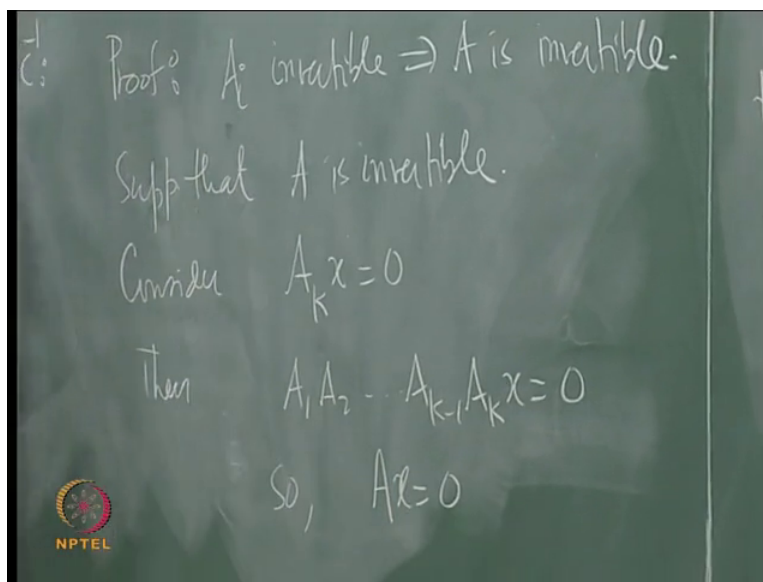 C⁻¹:
Proof: Aᵢ invertible ⇒ A is invertible.
Supp that A is invertible.
Consider Aₖx=0
Then A₁A₂ ... Aₖ₋₁Aₖx=0
So, Ax=0
NPTEL